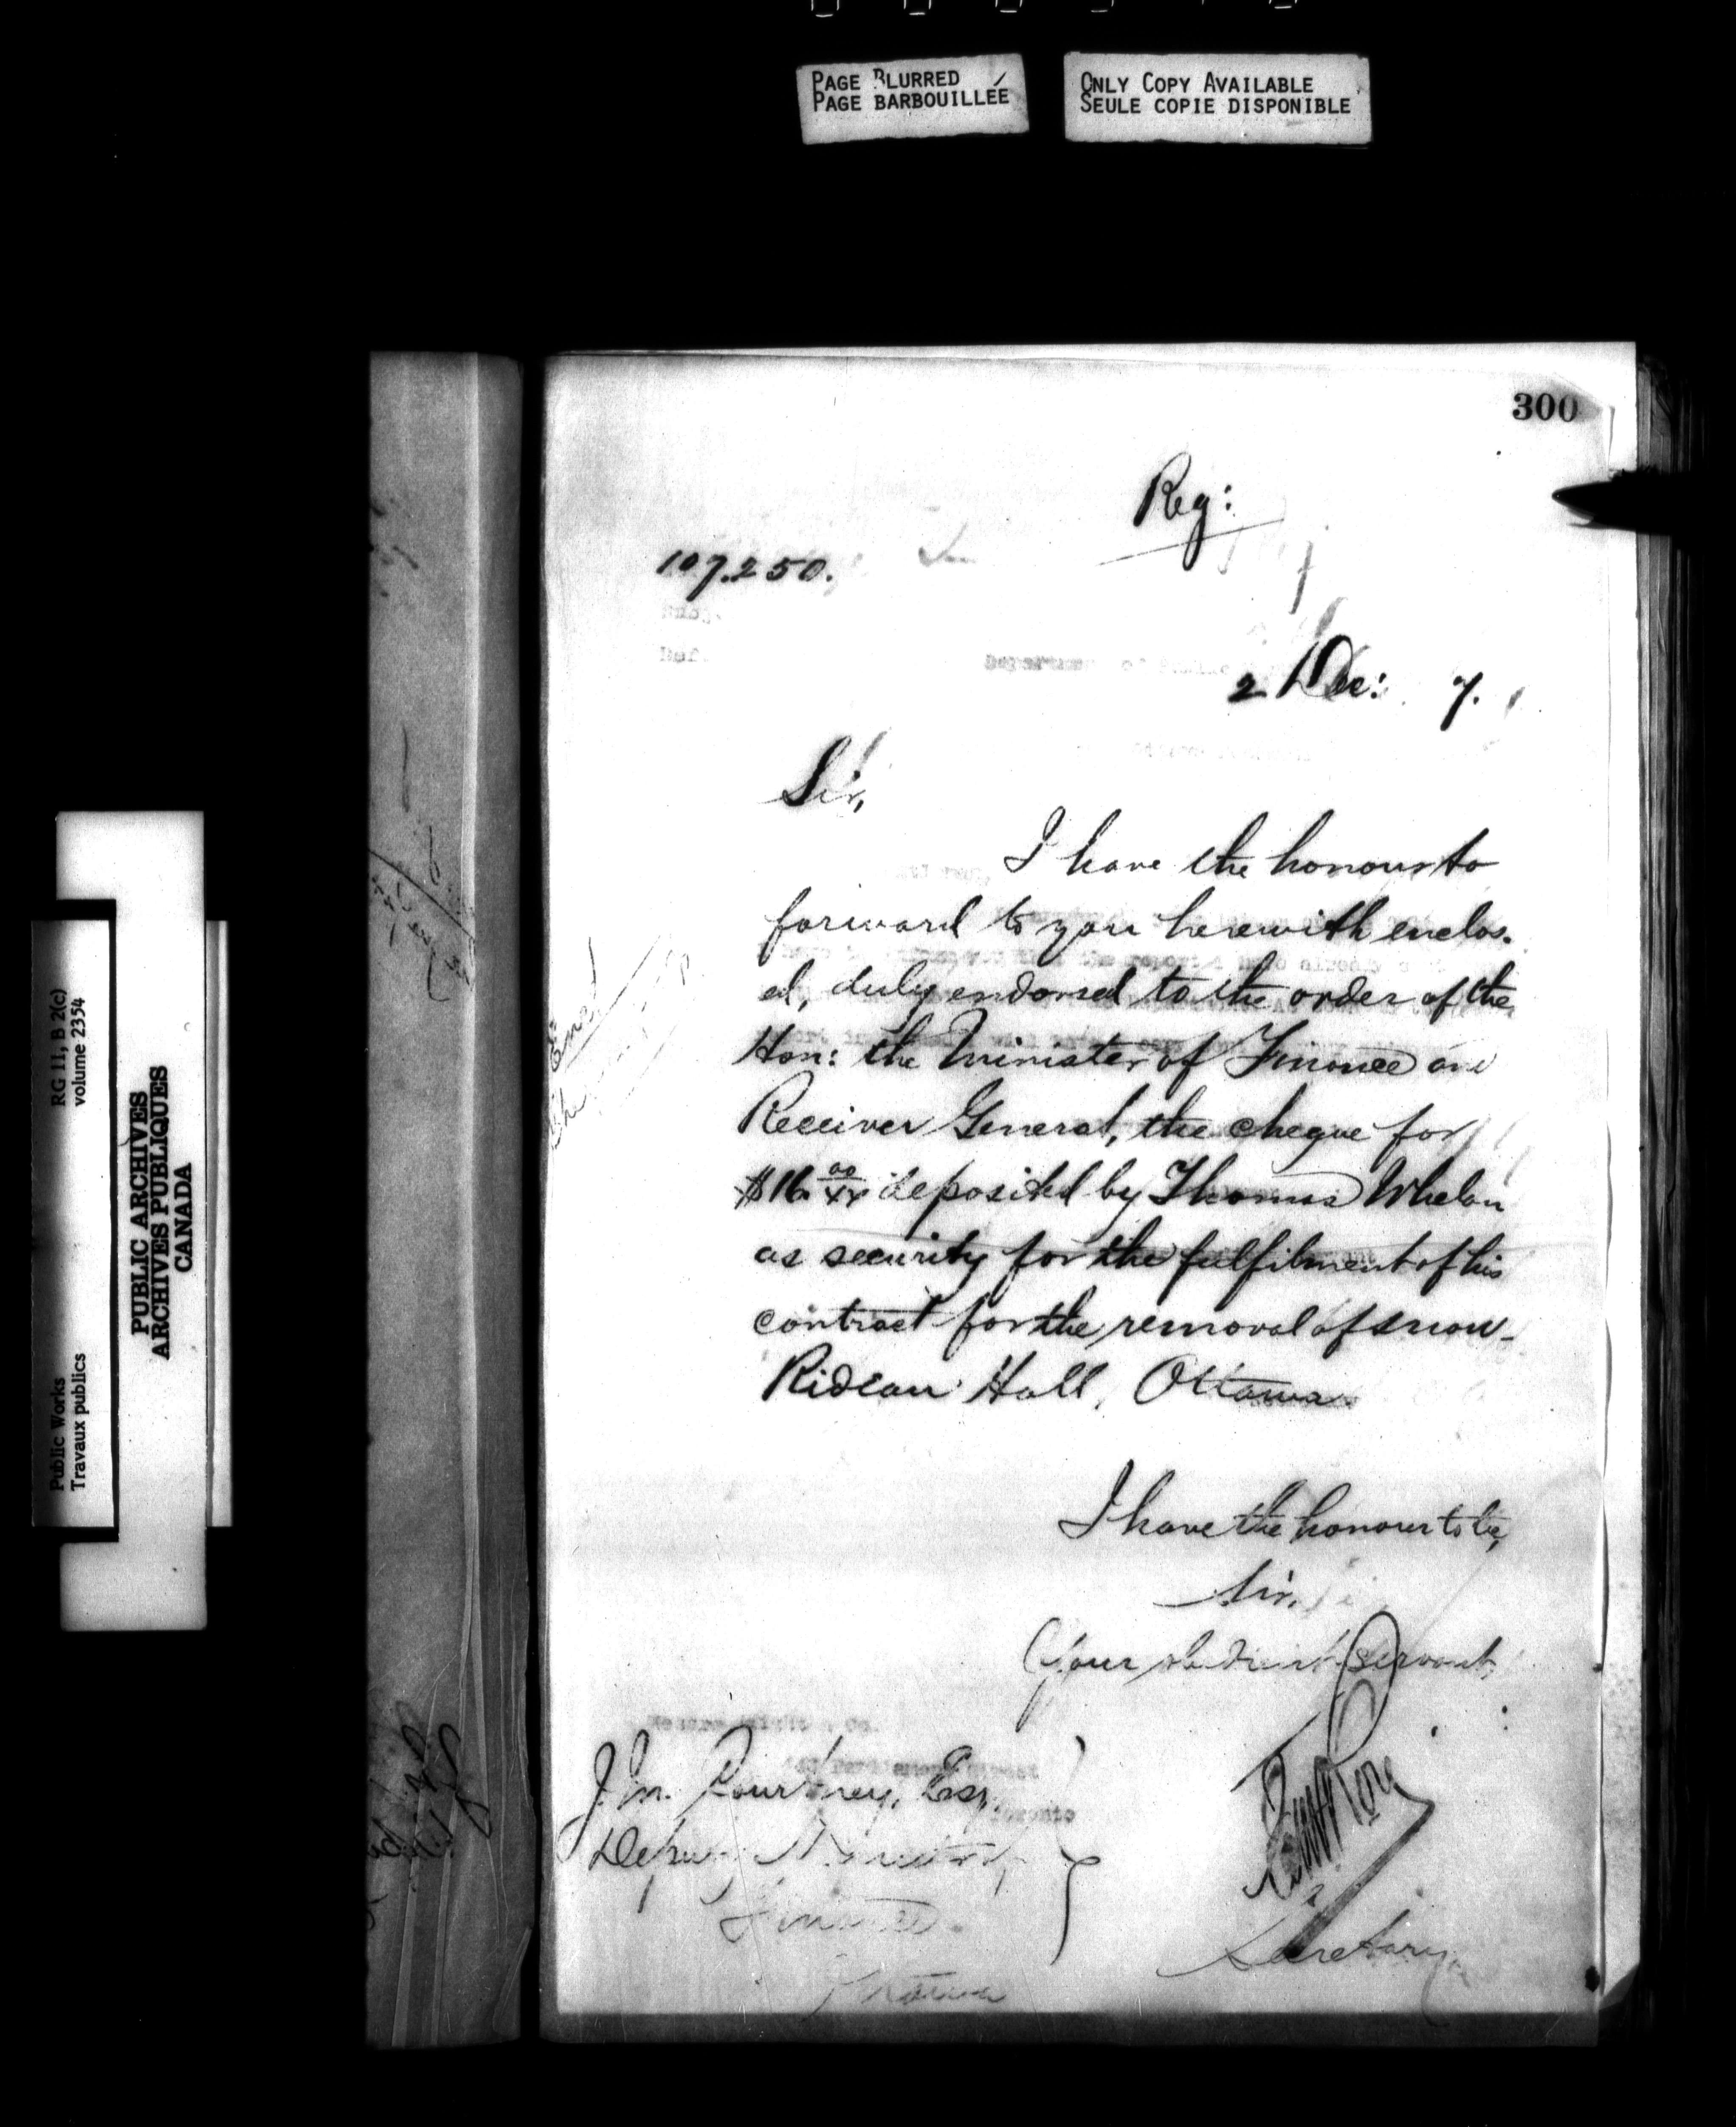 PAGE BLURRED
PAGE BARBOUILLÉE
ONLY COPY AVAILABLE
SEULE COPIE DISPONIBLE
RG 11, B 2(c)
volume 2354
Public Works
Travaux publics
PUBLIC ARCHIVES
ARCHIVES PUBLIQUES
CANADA
300
Reg:
107.250.
2 Dec: 7.
Sir,
I have the honour to
forward to you herewith enclos-
ed, duly endorsed to the order of the
Hon: the Minister of Finance and
Receiver General, the cheque for
$16 00/xx deposited by Thomas Whelan
as security for the fulfilment of his
contract for the removal of snow-
Rideau Hall, Ottawa.
I have the honour to be,
Sir,
Your obedient Servant,
J. M. Courtney, Esq,
Deputy Minister,
Finance.
Ottawa
Secretary.